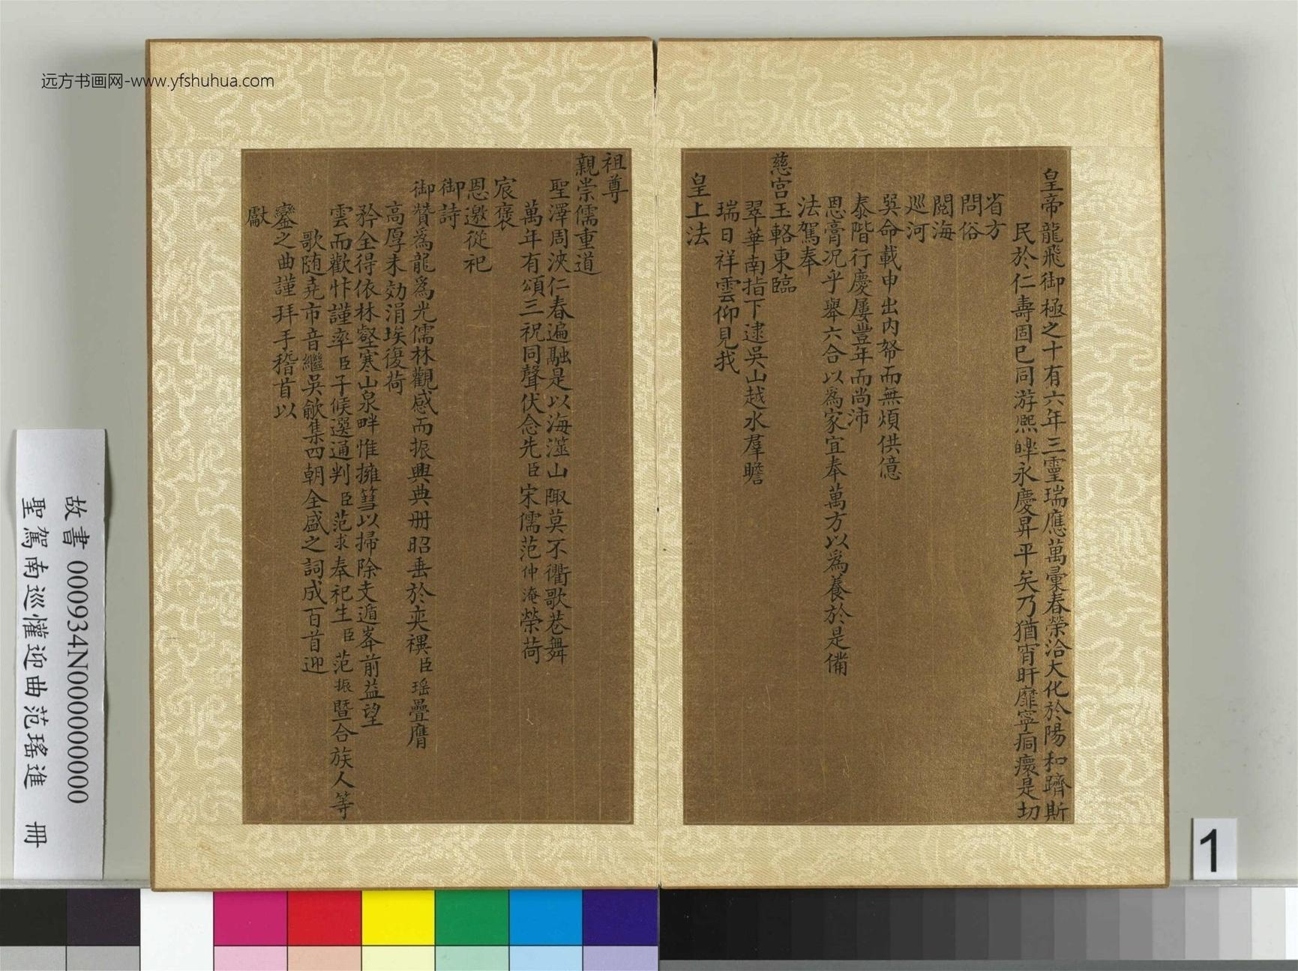 远方书画网-www.yfshuhua.com
皇帝龍飛御極之十有六年三靈瑞應萬彙春榮洽大化於陽和躋斯
民於仁壽固已同游熈皥永慶昇平矣乃猶宵旰靡寧痌瘝是切
省方
問俗
閱海
巡河
巽命載申出內帑而無煩供億
泰階行慶屢豐年而尚沛
恩膏况乎舉六合以爲家宜奉萬方以爲養於是備
法駕奉
慈宮玉輅東臨
翠華南指下逮吳山越水羣瞻
瑞日祥雲仰見我
皇上法
祖尊
親崇儒重道
聖澤周浹仁春遍融是以海澨山陬莫不衢歌巷舞
萬年有頌三祝同聲伏念先臣宋儒范仲淹榮荷
宸褒
恩邀從祀
御詩
御贊爲龍爲光儒林觀感而振興典册昭垂於奕禩臣瑶疊膺
高厚未効涓埃復荷
矜全得依林壑寒山泉畔惟擁篲以掃除支遁峯前益望
雲而歡忭謹率臣子候選通判臣范求奉祀生臣范振暨合族人等
歌随堯市音繼吳歈集四朝全盛之詞成百首迎
鑾之曲謹拜手稽首以
獻
故書 000934N000000000
聖駕南巡懽迎曲范瑤進 冊
1